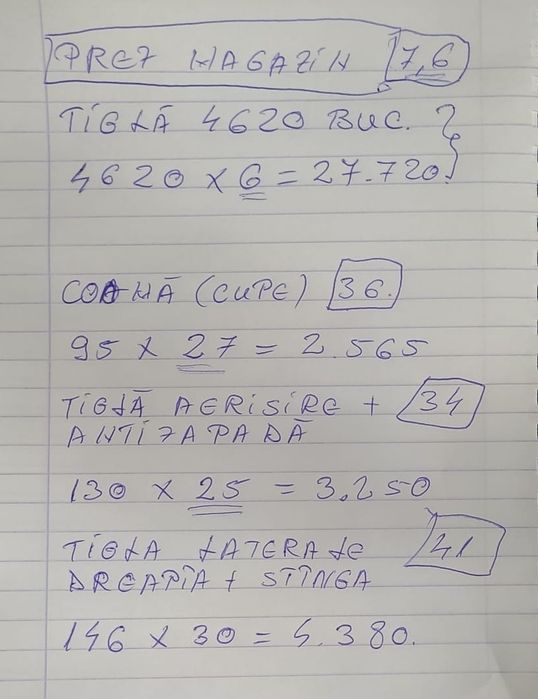 PREZ MAGAZIN 7,6
TIGLĂ 4620 BUC.
4620 x 6 = 27.720.
COAMĂ (CUPE) 36.
95 x 27 = 2.565
TIGLĂ AERISIRE + 34
ANTIZAPADĂ
130 x 25 = 3.250
TIGLA LATERALE 41
DREAPTA + STÎNGA
146 x 30 = 4.380.